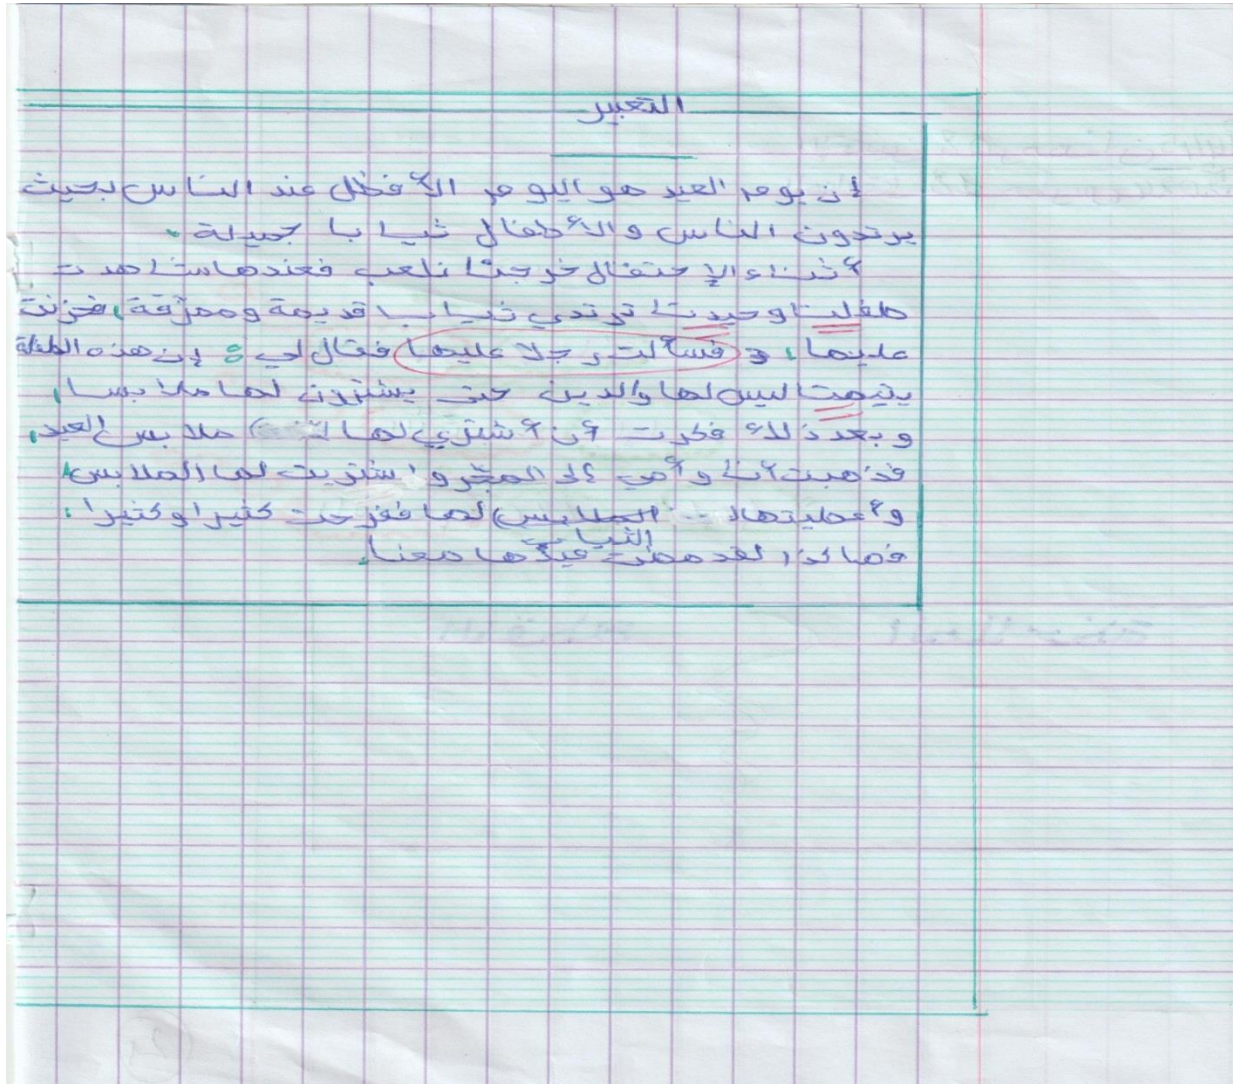 التعبير
إن يوم العيد هو اليوم الأفظل عند الناس بحيث
يرتدون الناس والأطفال ثيابا جميلة.
أثناء الإحتفال خرجنا نلعب فعندها شاهدت
طفلت وحيدت ترتدي ثيابا قديمة وممزقة، فحزنت
عليها، و فسألت رجلا عليها فقال لي: إن هذه الطفلة
يتيمت ليس لها والدين حتى يشترون لها ملابسا،
وبعد ذلك فكرت أن أشتري لها ملابس العيد،
فذهبت أنا وأمي إلى المتجر واشتريت لها الملابس،
وأعطيتها الملابس لها ففرحت كثيرا وكثيرا.
الثياب
لقد مضت عيدها معنا.